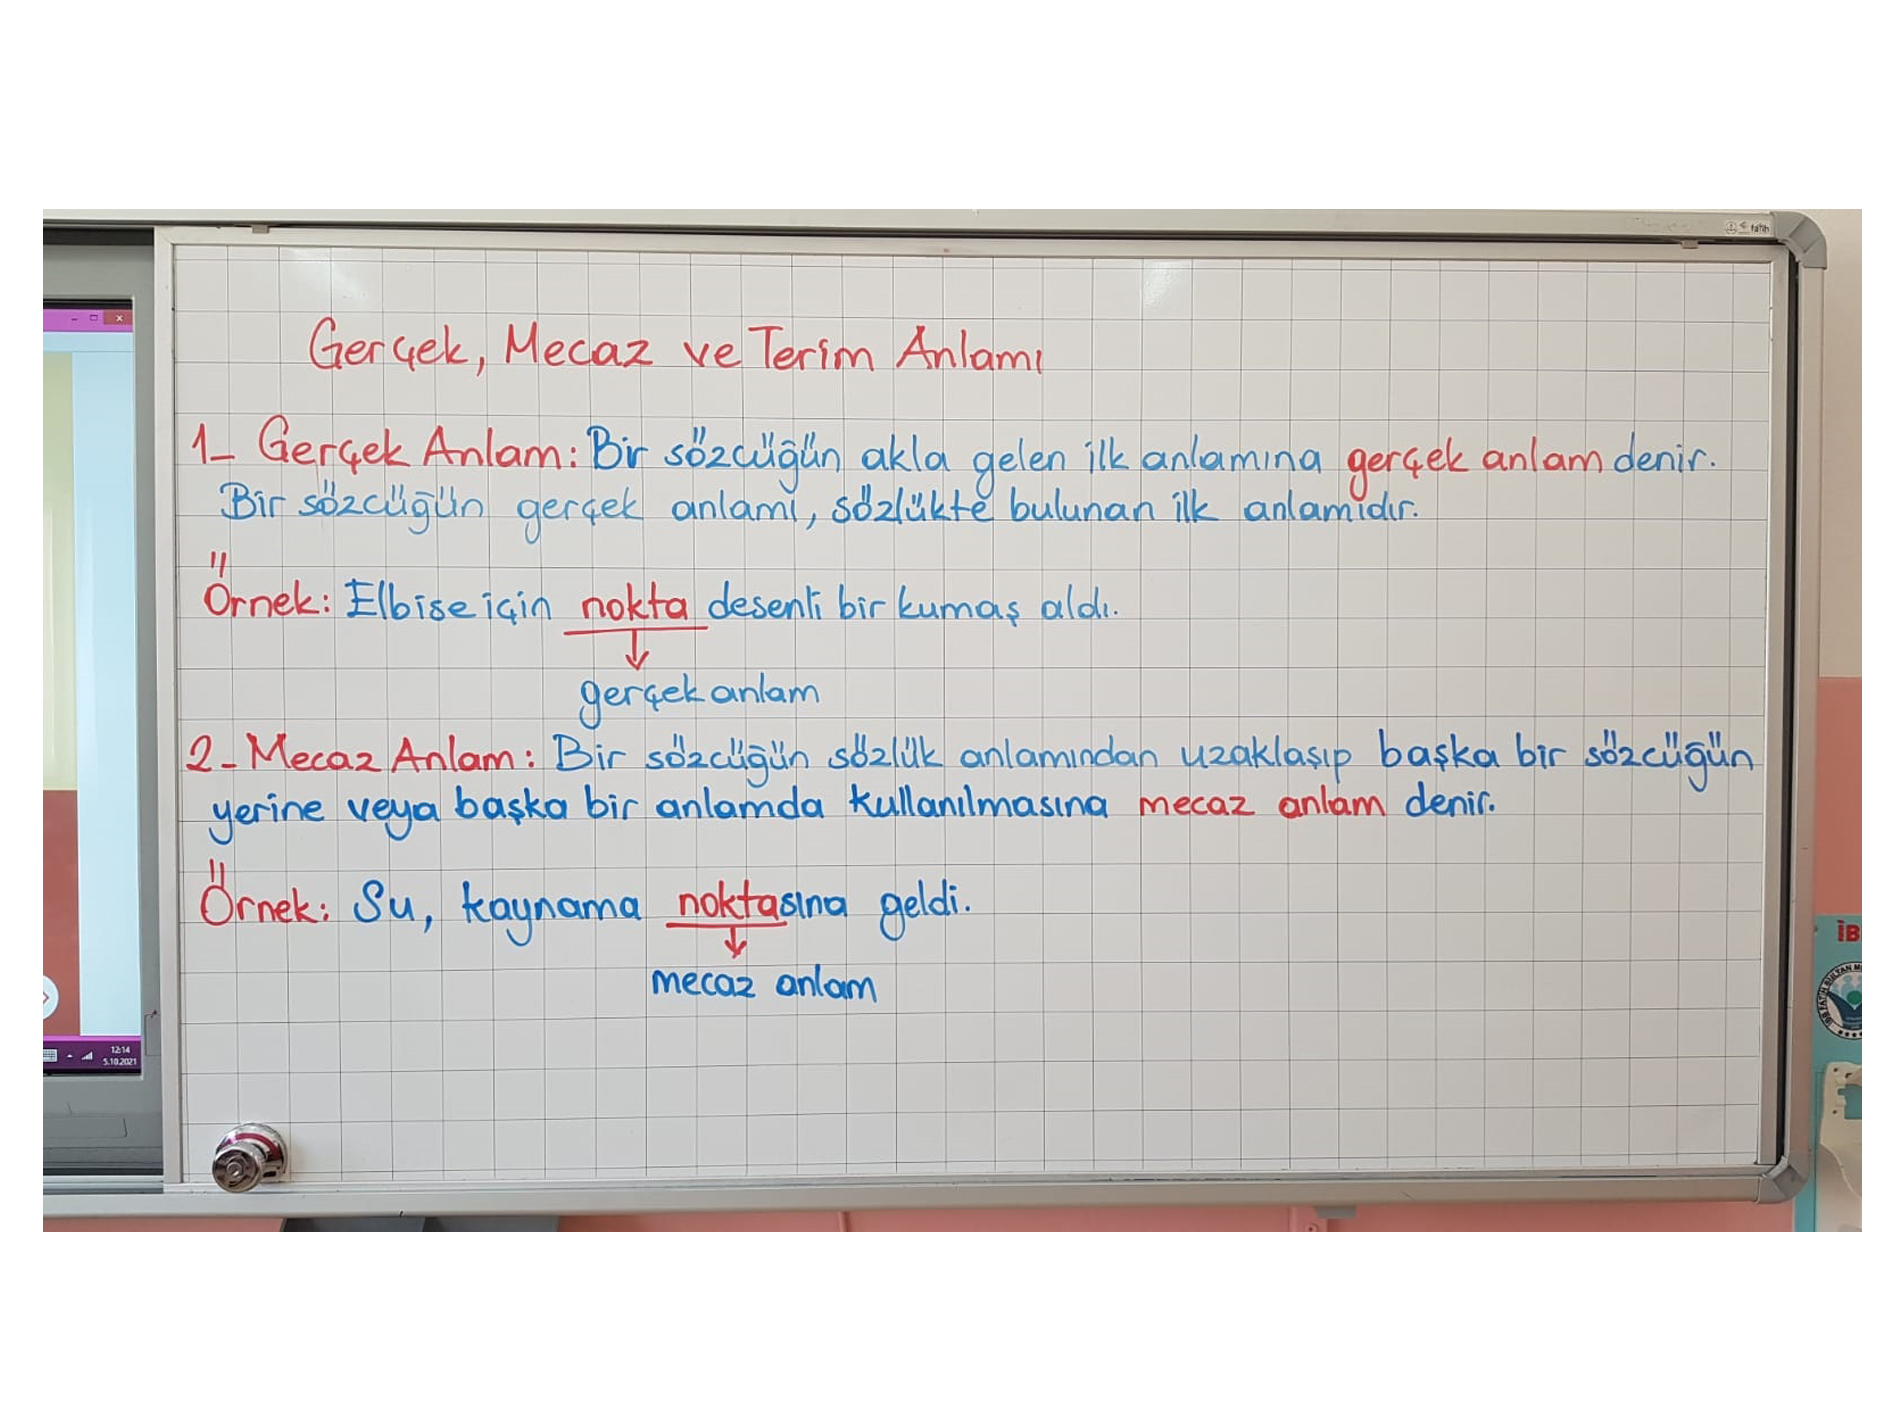 fatih
Gerçek, Mecaz ve Terim Anlamı
1- Gerçek Anlam: Bir sözcüğün akla gelen ilk anlamına gerçek anlam denir.
Bir sözcüğün gerçek anlamı, sözlükte bulunan ilk anlamıdır.
Örnek: Elbise için nokta desenli bir kumaş aldı.
gerçek anlam
2- Mecaz Anlam: Bir sözcüğün sözlük anlamından uzaklaşıp başka bir sözcüğün
yerine veya başka bir anlamda kullanılmasına mecaz anlam denir.
Örnek: Su, kaynama noktasına geldi.
mecaz anlam
12:14
5.10.2021
İB